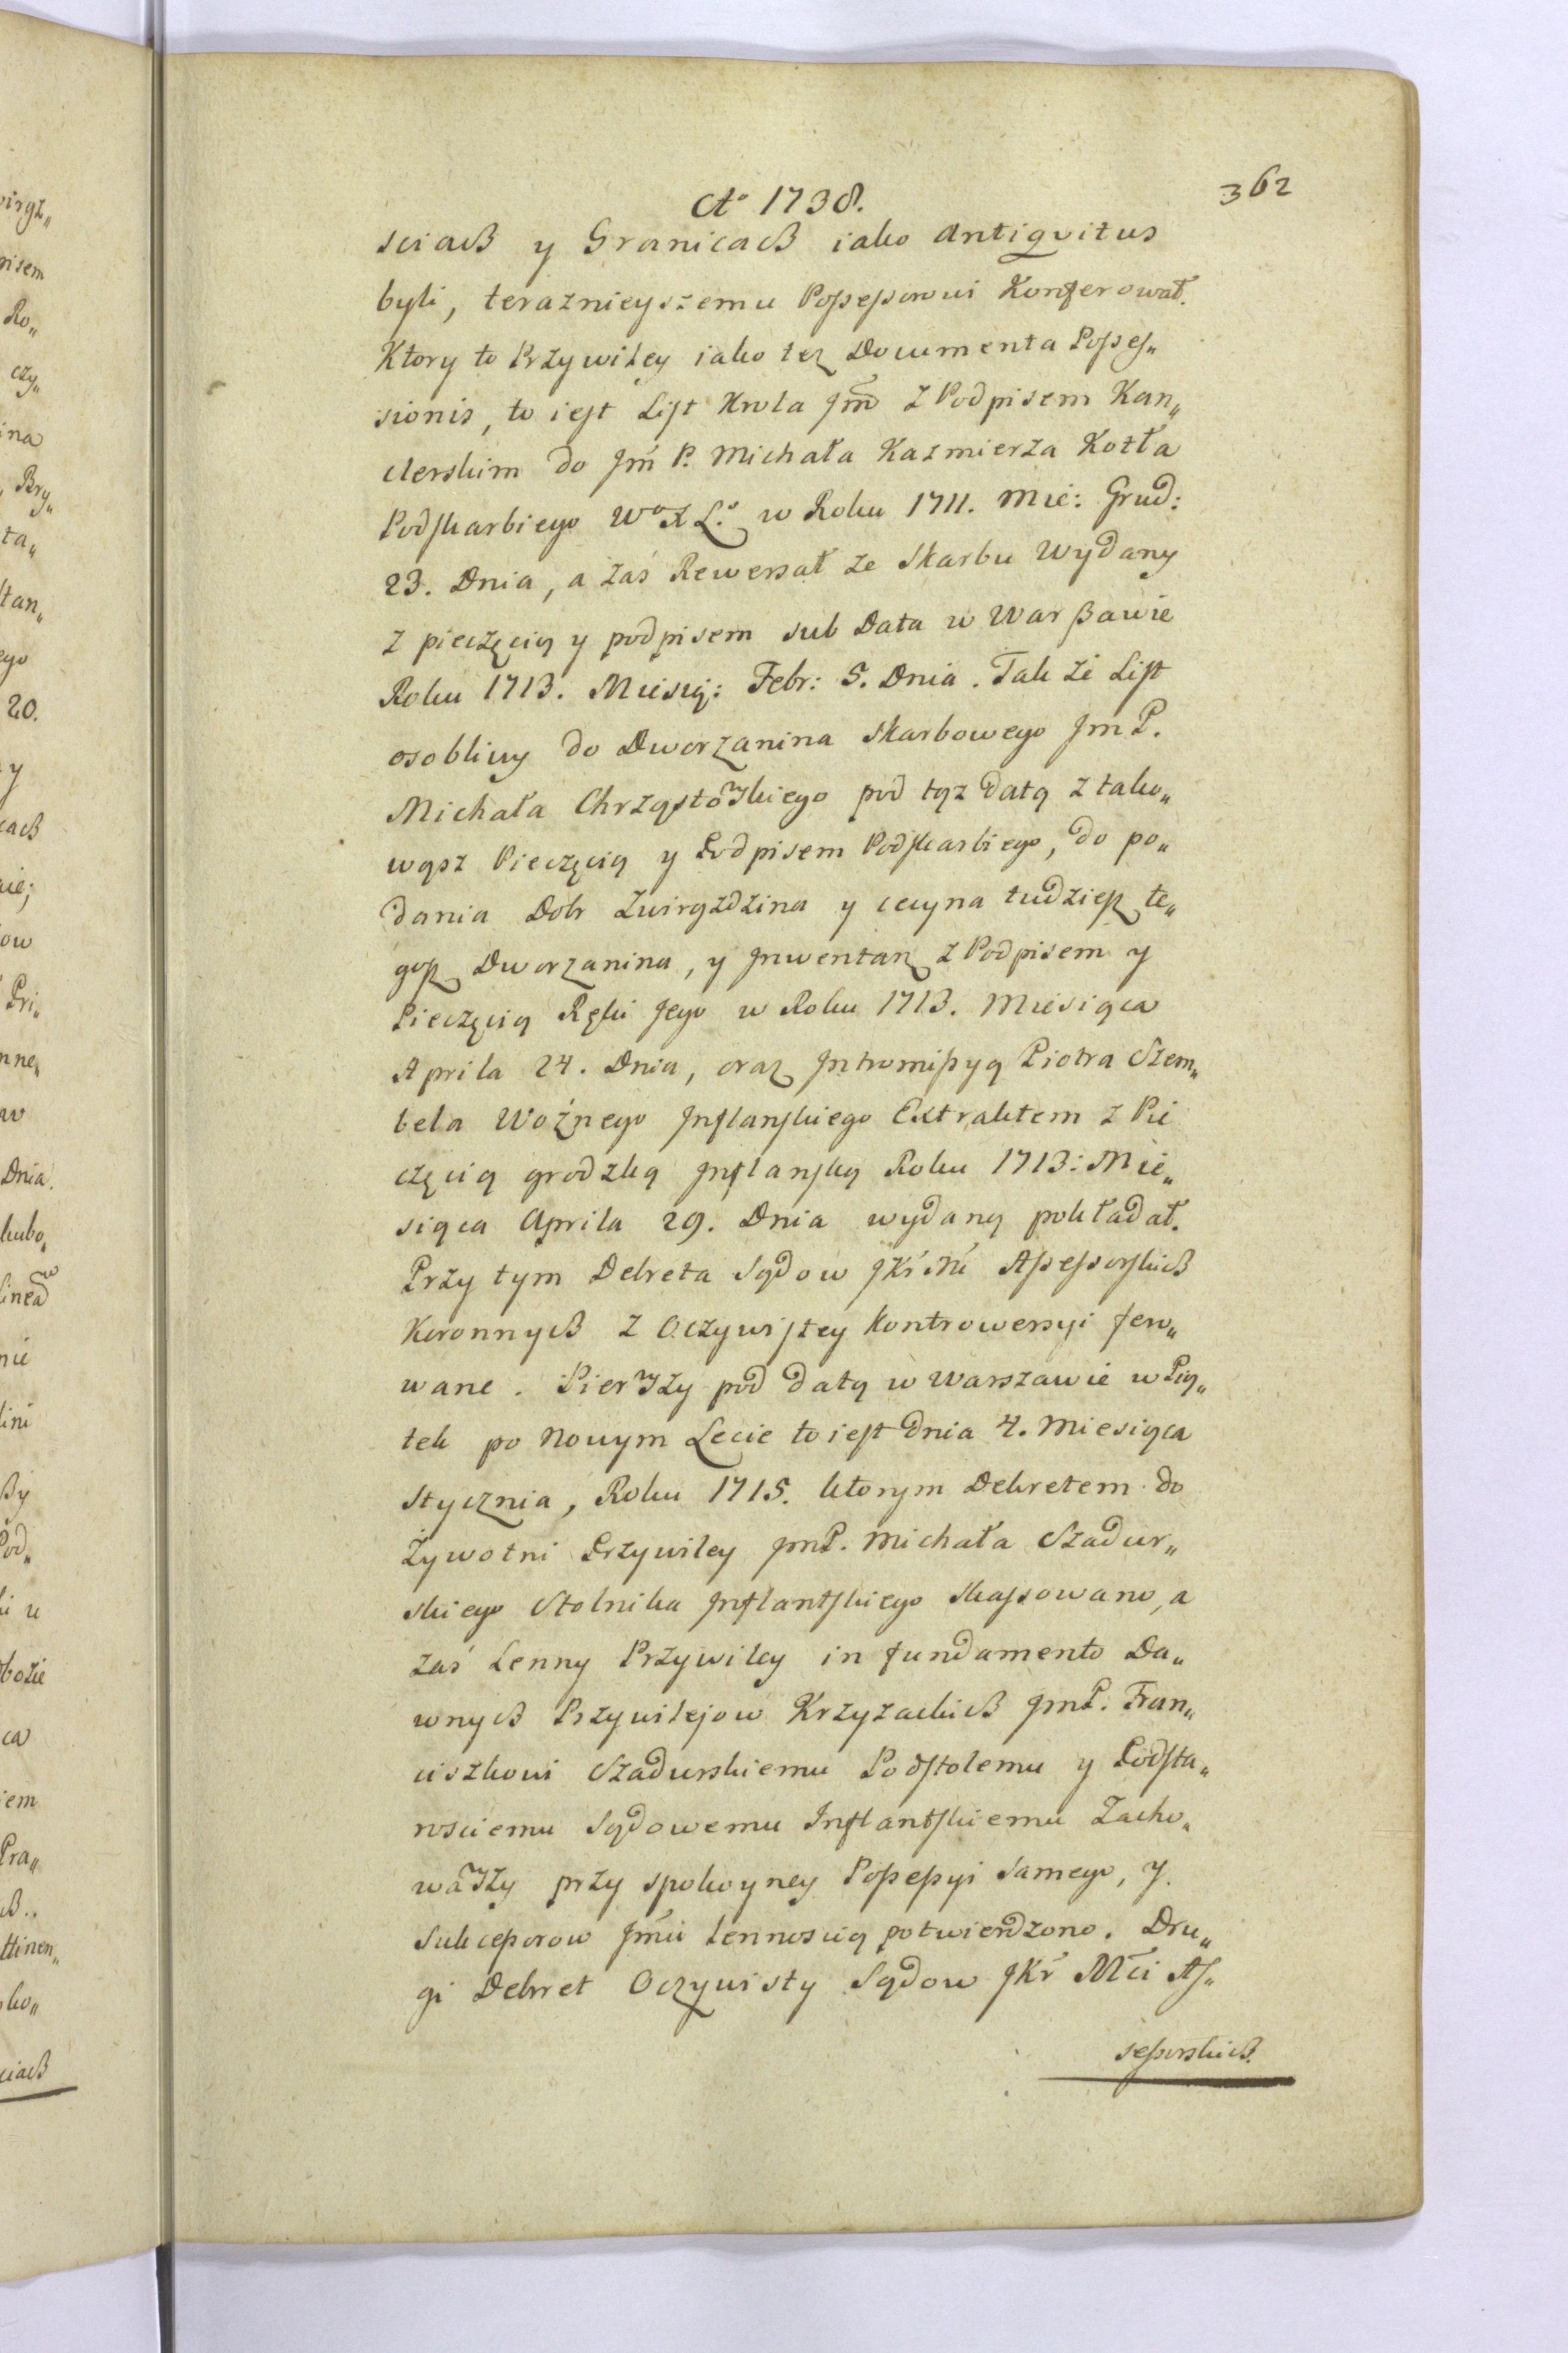 362
Ao 1738.
sciach y Granicach iako Antiqvitus
byli, teraznieyszemu Possessorowi Konferował.
Ktory to Przywiley iako tez Documenta Posses„
sionis, to iest List Krola Jm z Podpisem Kan„
clerskim do Jm P. Michała Kazmierza Kotła
Podskarbiego Wo X Lo w Roku 1711. Mie: Grud:
23. Dnia, a zaś Rewersał ze Skarbu Wydany
z pieczęcią y podpisem sub Data w Warszawie
Roku 1713. Miesią: Febr: 5. Dnia. Tak ze List
osobliwy do Dworzanina Skarbowego Jm P.
Michała Chrząstowskiego pod tąz datą z tako„
wąsz Pieczęcią y Podpisem Podskarbiego, do po„
dania Dobr Zwirgzdzina y Cecyna tudziesz te„
gosz Dworzanina, y Jnwentarz z Podpisem y
Pieczęcią Ręki Jego w Roku 1713. Miesiąca
Aprila 24. Dnia, oraz Jntromissyą Piotra Szem„
bela Woźnego Jnflanskiego Extraktem z Pie
częcią grodzką Jnflanską Roku 1713: Mie„
siąca Aprila 29. Dnia wydaną pokładał.
Przy tym Dekreta Sądow JKr Mi Assessorskich
Koronnych z Oczywistey Kontrowersyi fero„
wane. Pierwszy pod datą w Warszawie w Pią„
tek po Nowym Lecie to iest Dnia 4. Miesiąca
Stycznia, Roku 1715. ktorym Dekretem do
Zywotni Przywiley JmP. Michała Szadur„
skiego Stolnika Jnflantskiego skassowano, a
zaś Lenny Przywiley in fundamento Da„
wnych Przywilejow Krzyzackich JmP. Fran„
ciszkowi Szadurskiemu Podstolemu y Podsta„
rosciemu Sądowemu Inflantskiemu Zacho„
wawszy przy spokoyney Possessyi samego, y
Sukcessorow Jmci Lennoscią potwierdzono. Dru„
gi Dekret Oczywisty Sądow JKr Mci As„
sessorskich.